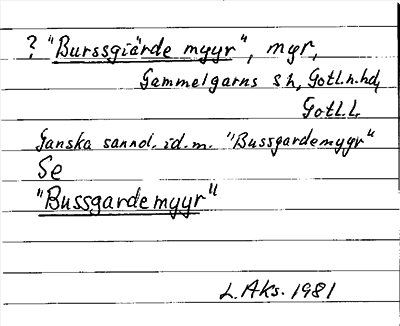 ? "Burssgiärde myyr", myr,
Gammelgarns sn, Gotl.n.hd,
Gotl.l.
Ganska sannol. id.m. "Bussgardemyyr"
Se
"Bussgardemyyr"
L. Aks. 1981